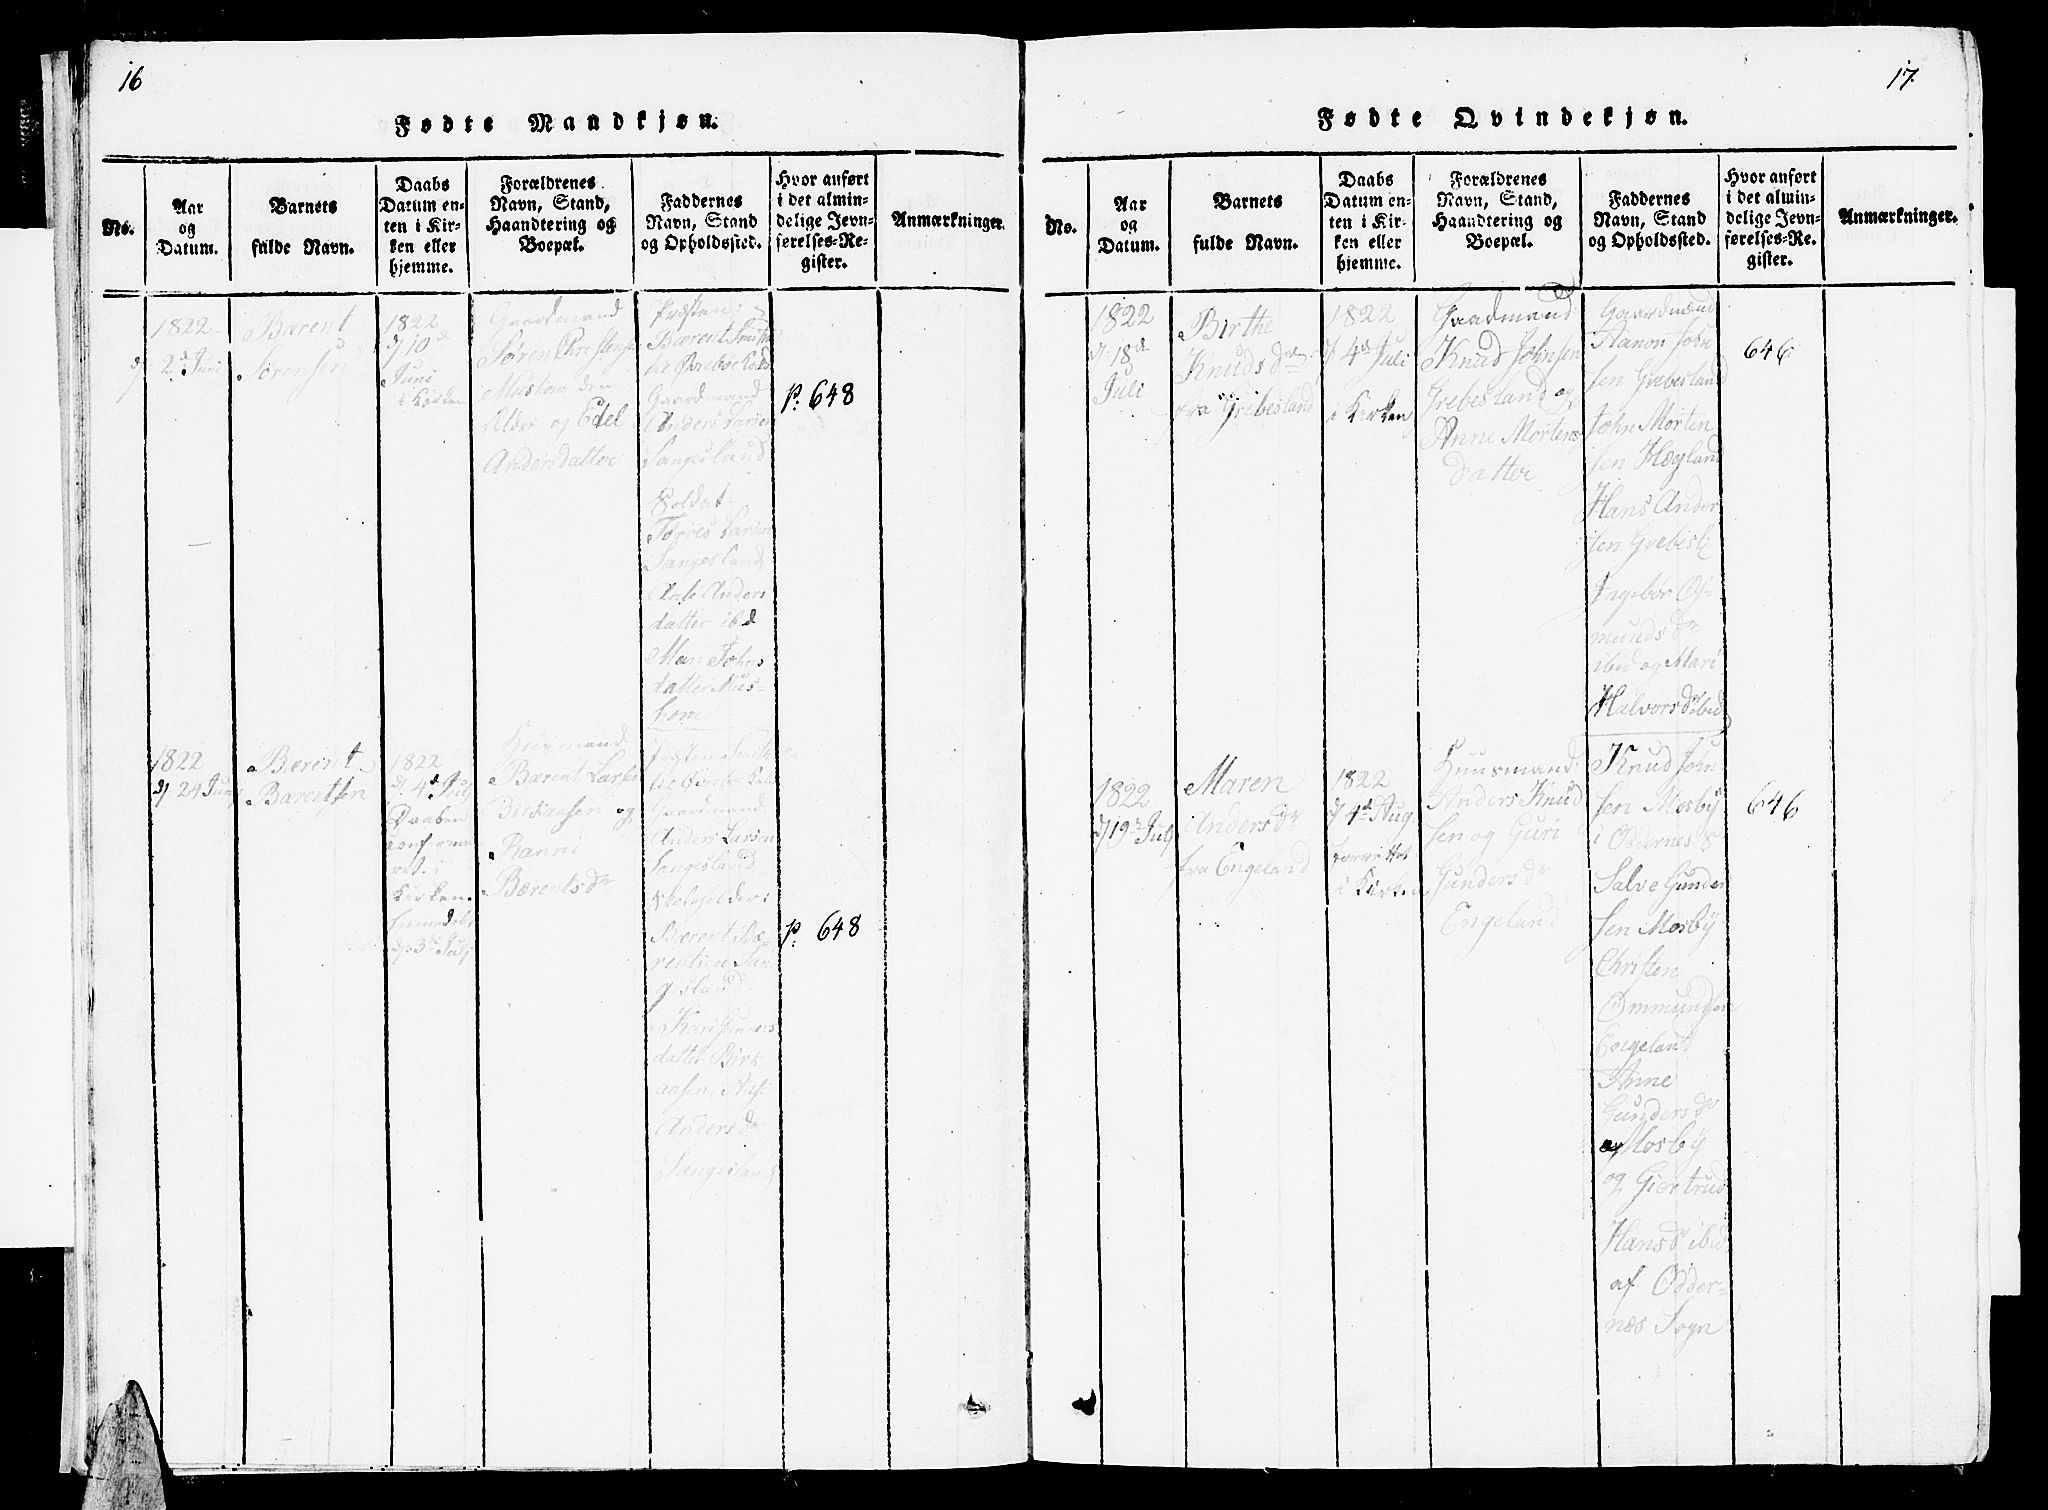 16
Fødte Mandkjøn.
No.
Aar
og
Datum.
Barnets
fulde Navn.
Daabs
Datum en-
ten i Kir-
ken eller
hjemme.
Forældrenes
Navn, Stand,
Haandtering og
Boepæl.
Faddernes
Navn, Stand
og Opholdssted.
Hvor anført
i det almin-
delige Jevn-
førelses-Re-
gister.
Anmærkninger.
1822
d 2d Juni
Bærent
Sørensen
1822
d 10d
Juni
i Kirken
Gaardmand
Søren Christensen
Mushom den
Ældre og Edel
Andersdatter
Præsten
Bærent
Gaardmand
Anders Larsen
Langesland
Soldat
Torres Larsen
Langesland
Aase Anders
datter ibd
Mari Johns
datter Mus-
hom
p. 648
1822
d 24 Juni
Bærent
Bærentsen
1822
d. 4d July
Daaben
confirme
ret i
Kirken
hjemdøbt
d. 3d July
Husmand
Bærent Larsen
Birkaasen og
Ranni
Bærentsdr
Gaardmand
Anders Larsen
Langesland
Skoleholder
Bærent Bæ-
rentsen Lan
gesland
Kari Gunners
datter Birk
aasen, Aase
Andersdr
Langesland
p. 648
17.
Fødte Qvindekjøn.
No.
Aar
og
Datum.
Barnets
fulde Navn.
Daabs
Datum en-
ten i Kir-
ken eller
hjemme.
Forældrenes
Navn, Stand,
Haandtering og
Boepæl.
Faddernes
Navn, Stand
og Opholdssted.
Hvor anført
i det almin-
delige Jevn-
førelses-Re-
gister.
Anmærkninger.
1822
d. 18d
Juli
Birthe
Knudsdr
fra Grebesland
1822
d 4d Juli
i Kirken
Gaadmand
Knud Johnsen
Grebesland og
Anne Mortens
datter
Gaardmænd
Hanon John
sen Grebesland
John Morten
sen Høyland
Hans Ander
sen Grebesl
Ingebor Os-
mundsdr
ibid og Mari
Halvorsdr ibid
646
1822
d 19d July
Maren
Andersdr
fra Engeland
1822
d 4d Aug
forrettet
i Kirken
Huusmand
Anders Knud
sen og Guri
Gundersdr
Engeland
Knud John
sen Mosby
i Oddernes S
Salve Gunder
sen Mosby
Christen
Ommundsen
Engeland
Anne
Gundersdr
Mosby
og Giertrud
Hansdr ibid
af Odder-
næs Sogn
646